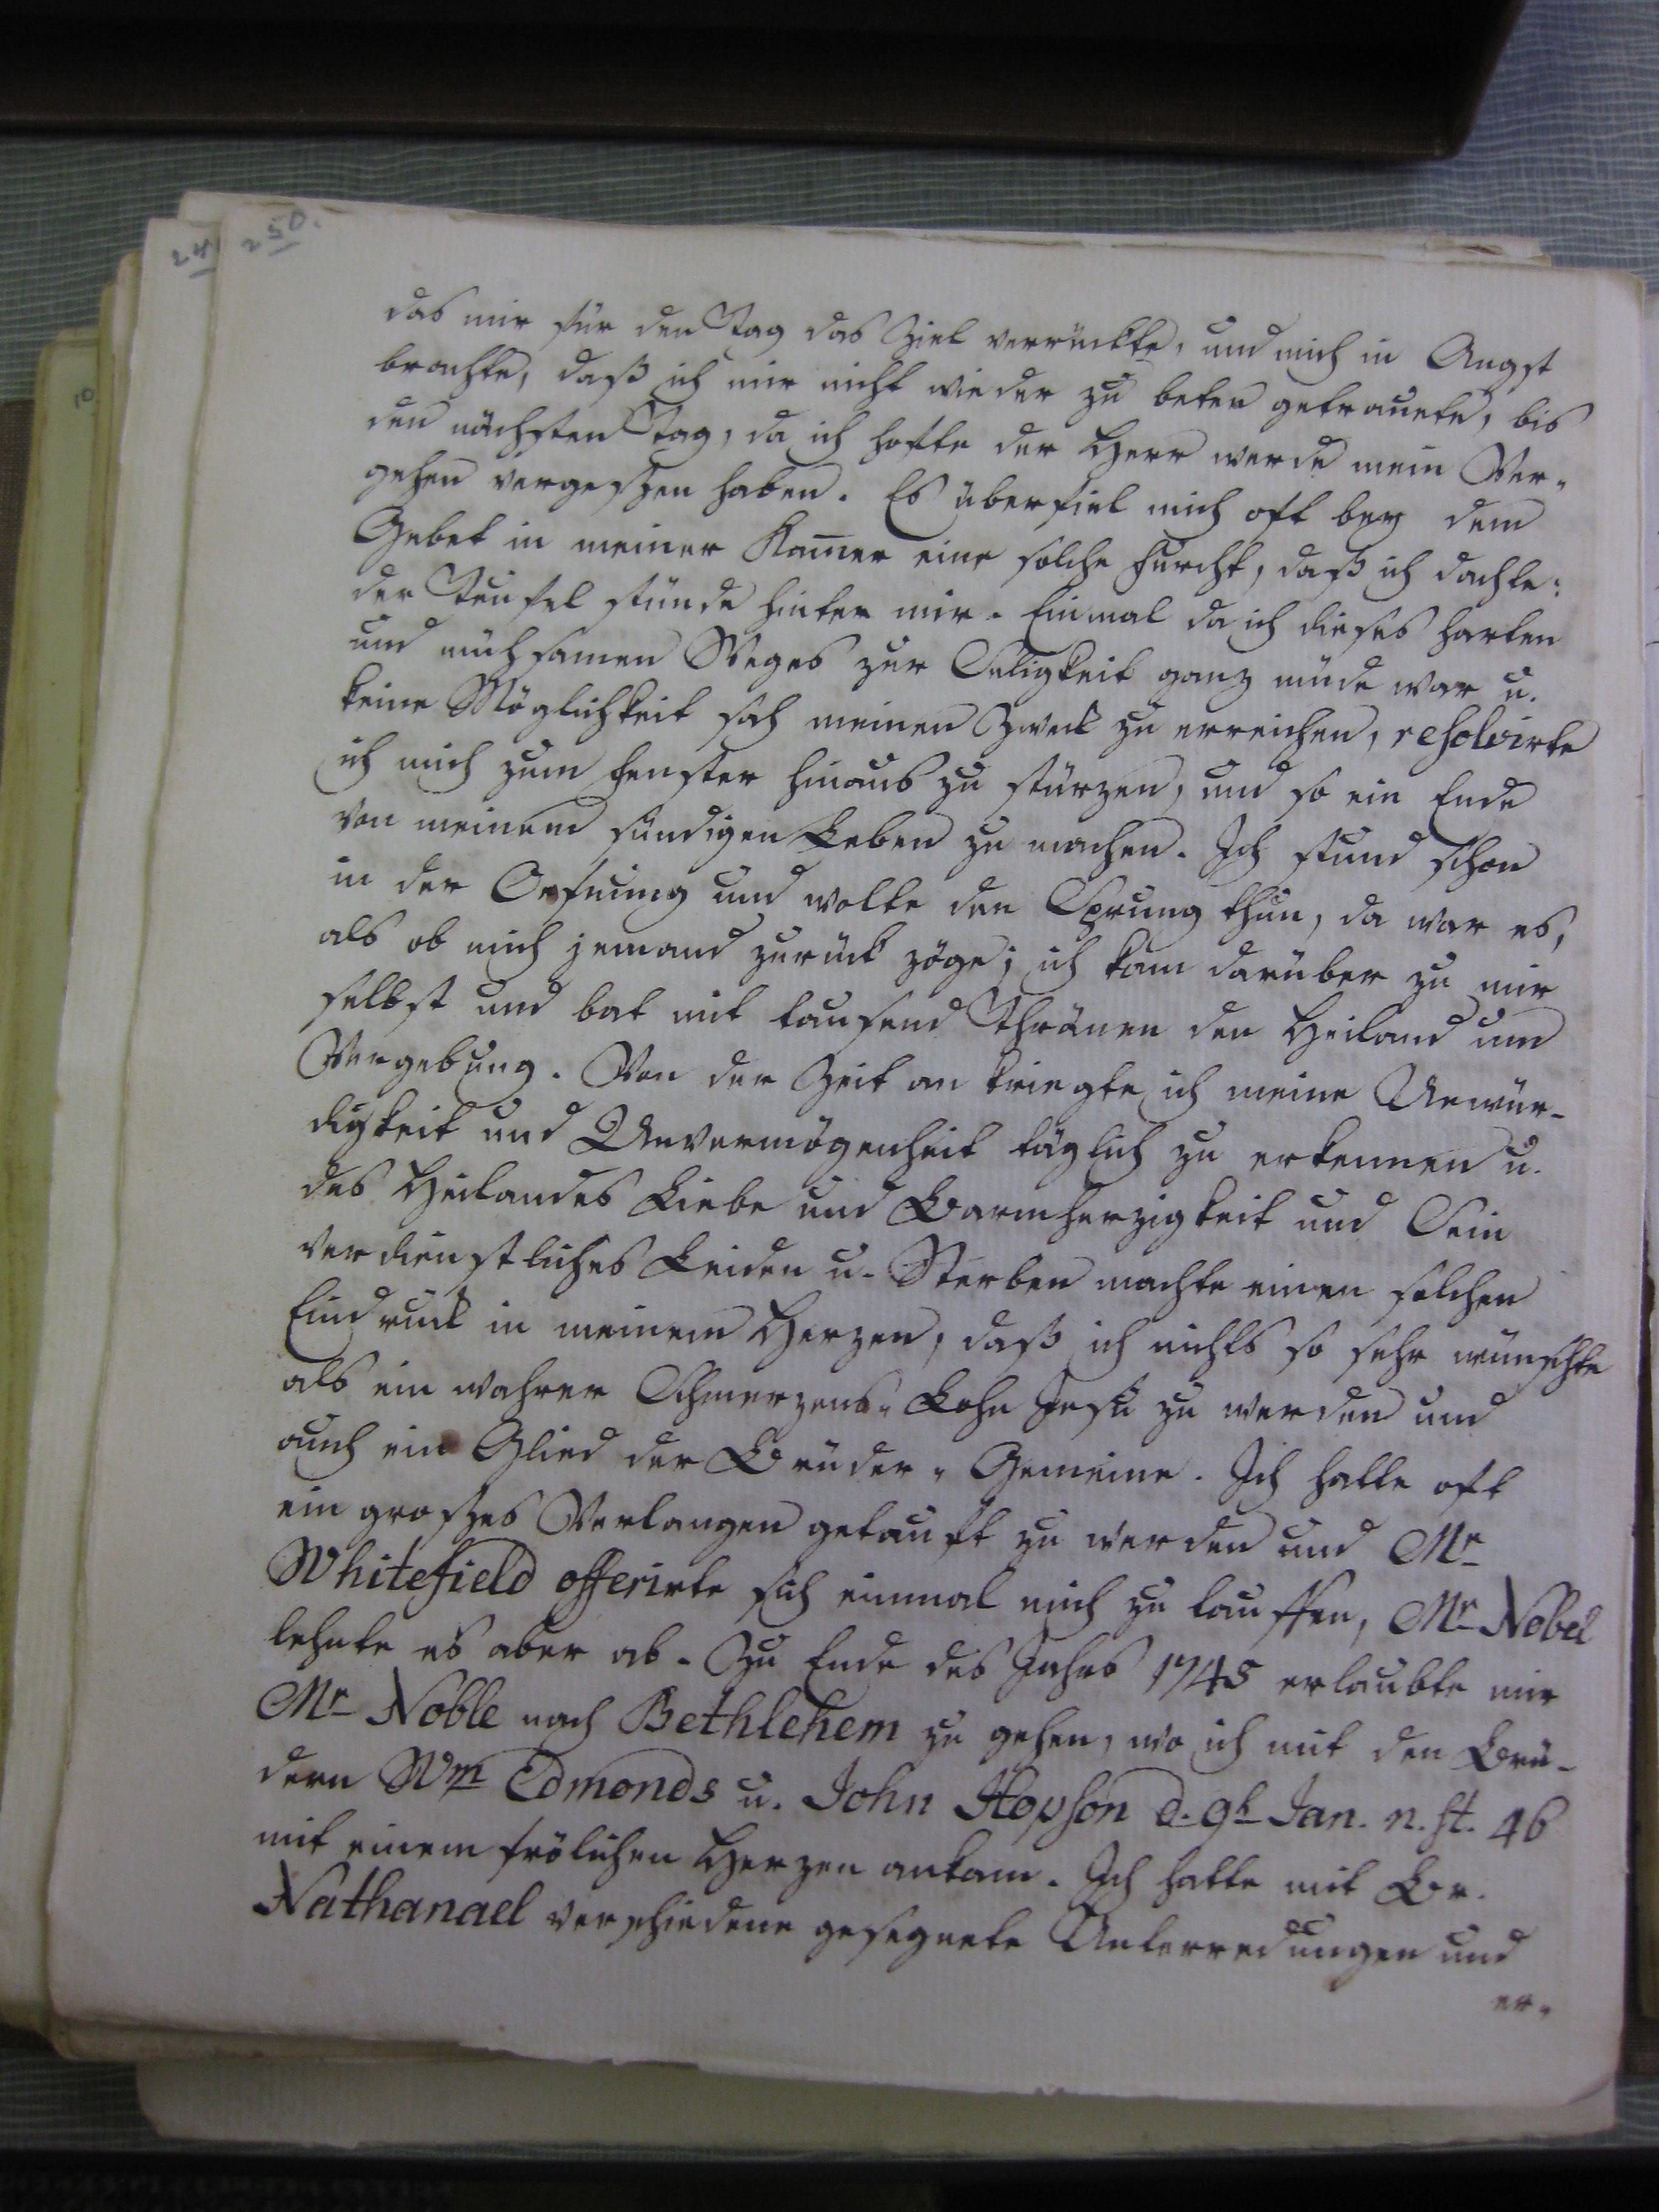 24
250.
10
das mir für den Tag das Ziel verrückte, und mich in Angst
brachte, daß ich mir nicht wieder zu beten getrauete, bis
den nächsten Tag, da ich hofte der Herr werde mein Ver-
gehen vergeßen haben. Es überfiel mich oft bey dem
Gebet in meiner Kam̅er eine solche Furcht, daß ich dachte:
der Teufel stünde hinter mir. Einmal da ich dieses harten
und mühsamen Weges zur Seligkeit ganz müde war u.
keine Möglichkeit sah meinen Zweck zu erreichen, resolvirte
ich mich zum Fenster hinaus zu stürzen, und so ein Ende
von meinem sündigen Leben zu machen. Ich stund schon
in der Oefnung und wolte den Sprung thun, da war es,
als ob mich jemand zurück zöge; ich kam darüber zu mir
selbst und bat mit tausend Thränen den Heiland um
Vergebung. Von der Zeit an kriegte ich meine Unwür-
digkeit und Unvermögenheit täglich zu erkennen u.
des Heilandes Liebe und Barmherzigkeit und Sein
verdienstliches Leiden u. Sterben machte einen solchen
Eindruck in meinem Herzen, daß ich nichts so sehr wünschte
als ein wahrer Schmerzens-Lohn Jesu zu werden und
auch ein Glied der Brüder-Gemeine. Ich hatte oft
ein großes Verlangen getauft zu werden und Mr
Whitefield offerirte sich einmal mich zu tauffen, Mr Nobel
lehnte es aber ab. Zu Ende des Jahrs 1745 erlaubte mir
Mr Noble nach Bethlehem zu gehen, wo ich mit den Brü-
dern Wm Edmonds u. John Hopson d. 9t Jan. n. st. 46
mit einem frölichen Herzen ankam. Ich hatte mit Br.
Nathanael verschiedene gesegnete Unterredungen und
er-